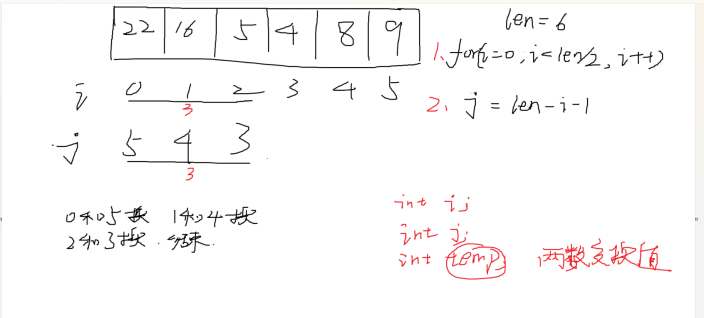 22 16 5 4 8 9
len=6
1、for(i=0;i<len/2,i++)
i 0 1 2 3 4 5
3
2、j=len-i-1
j 5 4 3
3
0和5换 1和4换
2和3换.结束.
int i;
int j;
int temp; 两数交换值